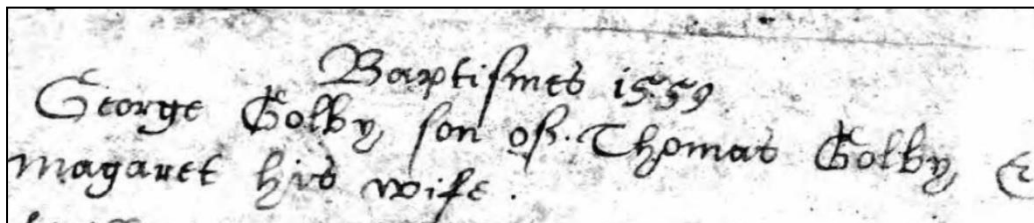 Baptismes 1559
George Golby, son of. Thomas Golby, &
Magaret his wife.